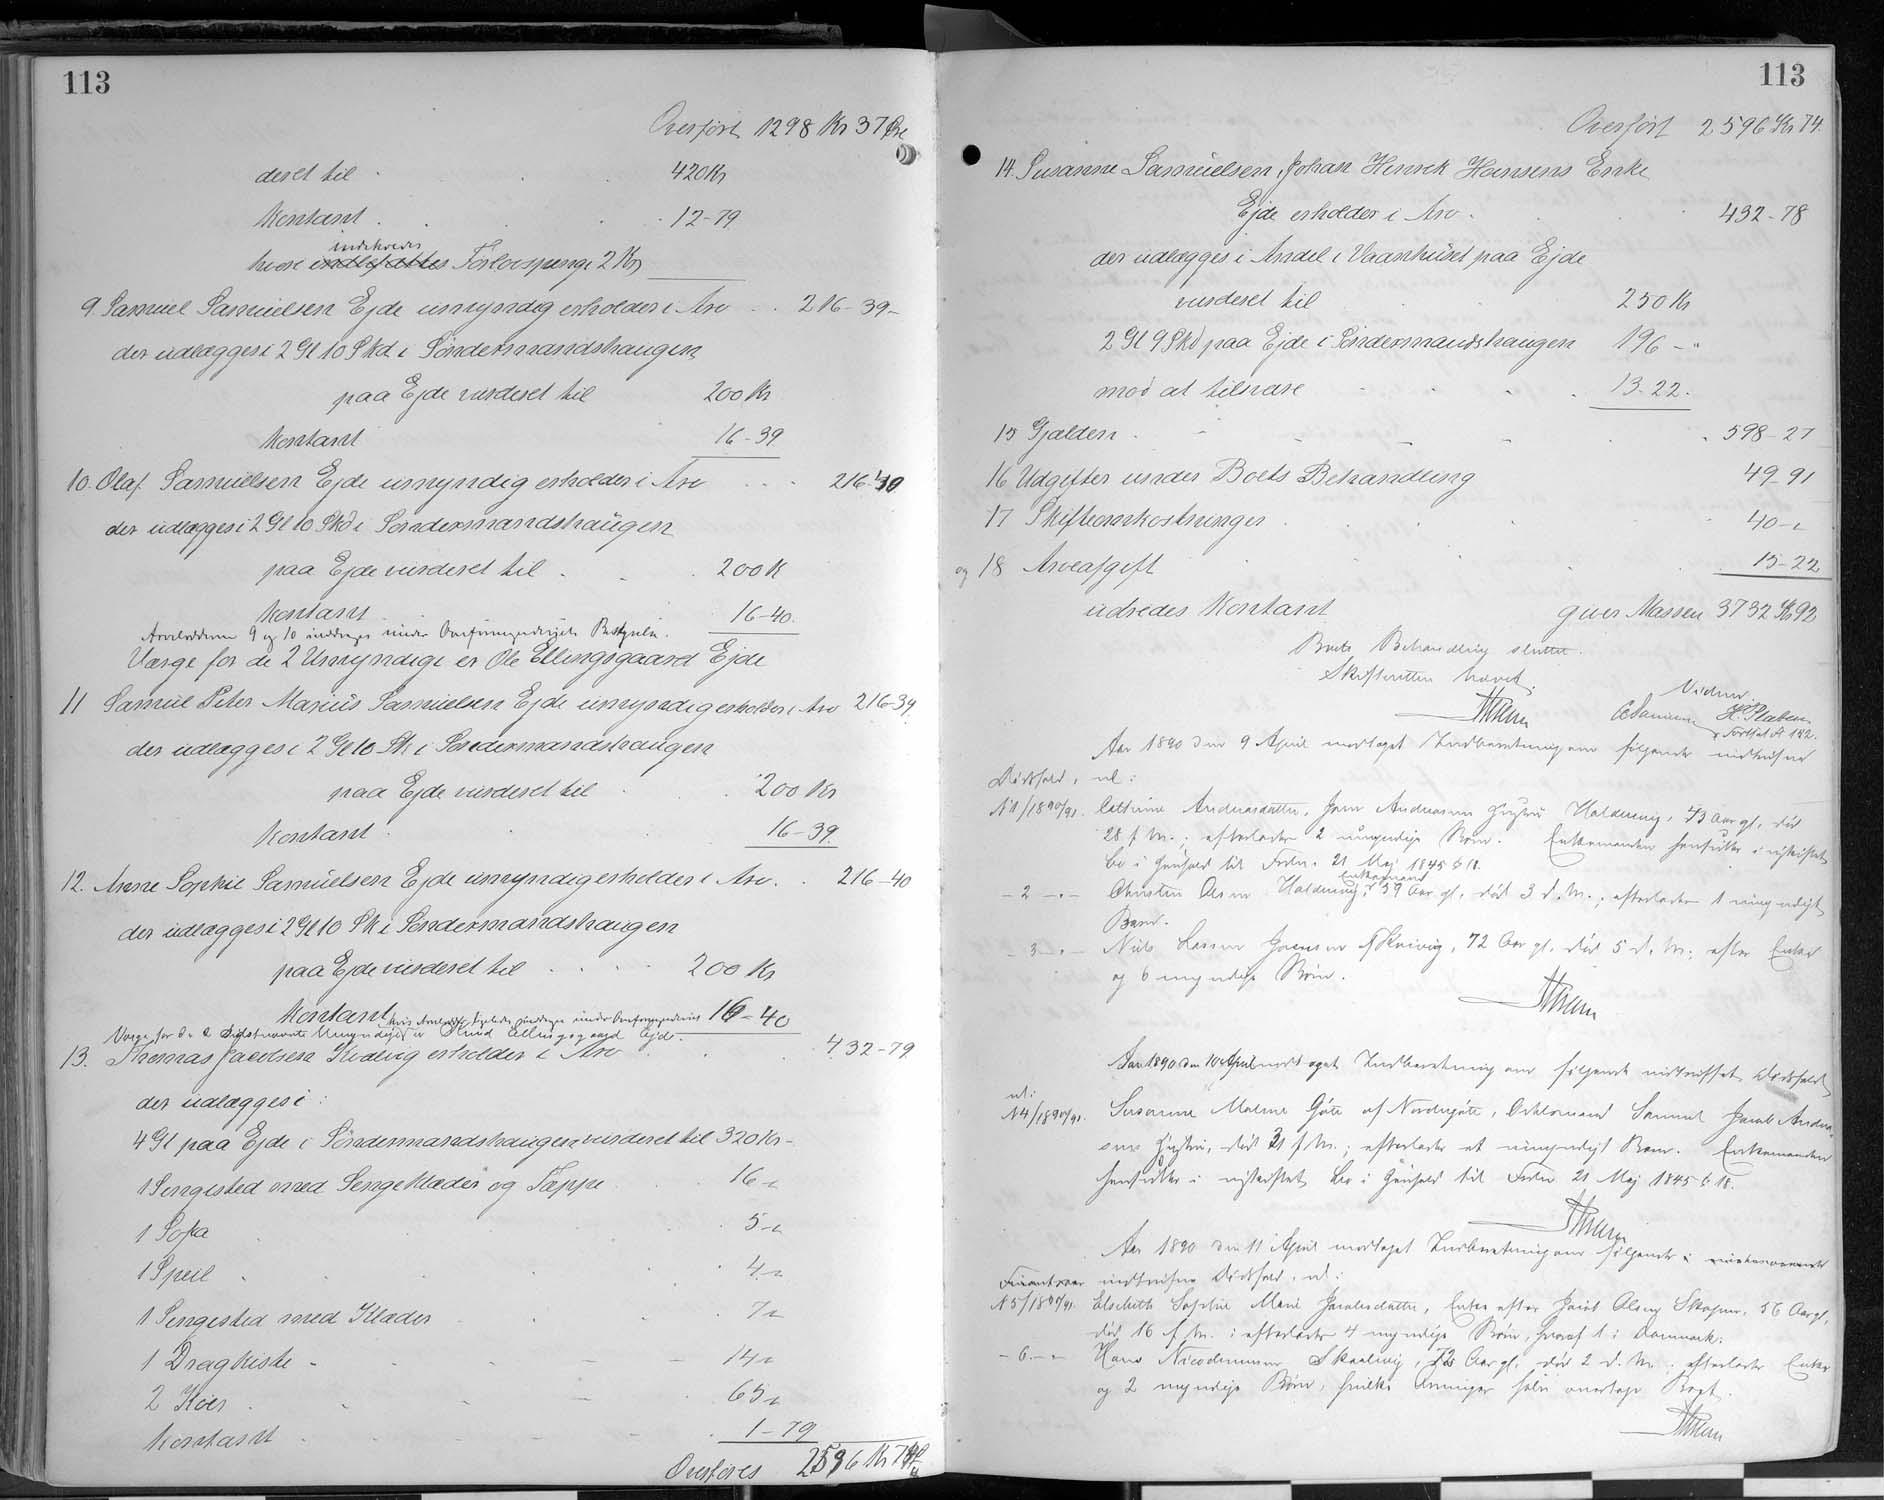 113
Overført 1298 Kr 37 Øre
deret til 420 Kr
Kontant 12-79
indehvedes
hvori indbefattes Forlovspenge 2 Kr
9. Samuel Samuelsen Ejde umyndig erholder i Arv 216-39-
der udlægges i 2 Gl 10 Skd i Søndermandshaugen
paa Ejde vurderet til 200 Kr
Kontant 16-39
10. Olaf Samuelsen Ejde umyndig erholder i Arv 216-40
der udlægges i 2 Gl 10 Skd i Søndermandshaugen
paa Ejde vurderet til 200 K
Kontant 16-40.
Arvelodderne 9 og 10 inddrages under Overformynderiets Bestyrelse.
Værge for de 2 Umyndige er Ole Ellingsgaard Ejde
11 Samuel Peter Marius Samuelsen Ejde umyndig erholder i Arv 216-39
der udlægges i 2 Gl 10 Sk. i Søndermandshaugen
paa Ejde vurderet til 200 Kr
Kontant 16-39.
12. Anne Sophie Samuelsen Ejde umyndig erholder i Arv. 216-40
der udlægges i 2 Gl 10 Sk i Søndermandshaugen
paa Ejde vurderet til 200 Kr
Kontant 16-40
hvis Arvelod ligeledes inddrages under Overformynderiet
Værge for de 2 sidstnævnte Umyndige er Ellingsgaard Ejde.
13. Thomas Jacobsen Kvalvig erholder i Arv 432-79
der udlægges i:
4 Gl paa Ejde i Søndermandshaugen vurderet til 320 Kr-
1 Sengested med Sengeklæder og Tæppe 16 "
1 Sofa 5 "
1 Speil 4 "
1 Sengested med Klæder 7 "
1 Dragkiste 14 "
2 Køer 65 "
Kontant 1-79
Overføres 2596 Kr 74
113
Overført 2596 Kr 74.
14. Susanne Samuelsen, Johan Henrik Hansens Enke
Ejde erholder i Arv. 432-78
der udlægges i Andel i Vaanhuset paa Ejde
vurderet til 250 Kr
2 Gl 9 Skd paa Ejde i Søndermandshaugen 196-"
mod at tilsvare 13-22.
15 Gjælden 598-27
16 Udgifter under Boets Behandling 49-91
17 Skifteomkostninger 40-"
og 18 Arveafgift 15-22
udredes Kontant giver Massen 3732 Kr 92
Boets Behandling sluttet.
Skifteretten hævet.
Vidner.
Fortsat A 142.
Aar 1890 den 9 April modtaget Indberetning om følgende indtrufne
Dødsfald, nl:
N 1/1890/91. Cathrine Andreasdatter, Joen Andreasens Hustru Haldervig, 73 Aar gl. død
28 f. M.; efterlader 2 umyndige Børn. Enkemanden hensidder i uskiftet
Bo i Henhold til Frdn. 21 Maj 1845 § 18.
Enkemand
- 2 -"- Christen Olsen Haldervig, 59 Aar gl. død 3 d. M.; efterlader 1 umyndigt
Barn.
- 3 -"- Niels Lassen Joensen Kvivig, 72 Aar gl. død 5 d. M.; efter Enke
og 6 myndige Børn.
Aar 1890 den 10 April modtaget Indberetning om følgende indtruffet Dødsfald
nl:
N 4/1890/91. Susanne Malene Gøte af Nordregøte, Samuel Jacob Andrea-
sens Hustru, død 31 f. M.; efterlader et umyndigt Barn. Enkemanden
hensidder i uskiftet Bo i Henhold til Frdn 21 Maj 1845 § 18.
Aar 1890 den 11 April modtaget Indberetning om følgende i
indtrufne Dødsfald, nl:
N 5/1890/91. Elsebeth Sophie Marie Jacobsdatter, Enke efter Jacob Olsen Skopen, 56 Aar gl.
død 16 f. M.; efterlader 4 myndige Børn, hvoraf 1 i Danmark.
- 6 -"- Hans Nicodemussen Skaalevig, 72 Aar gl. død 2 d. M.; efterlader Enke
og 2 myndige Børn, hvilke Arvinger selv overtage Boet.